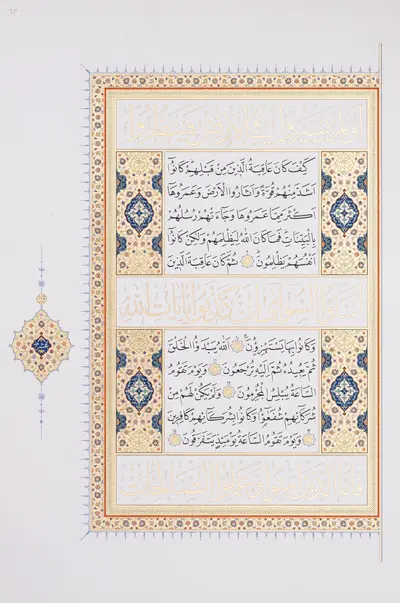 أَوَلَمْ يَسِيرُوا فِي الْأَرْضِ فَيَنْظُرُوا
كَيْفَ كَانَ عَاقِبَةُ الَّذِينَ مِنْ قَبْلِهِمْ كَانُوا
أَشَدَّ مِنْهُمْ قُوَّةً وَأَثَارُوا الْأَرْضَ وَعَمَرُوهَا
أَكْثَرَ مِمَّا عَمَرُوهَا وَجَاءَتْهُمْ رُسُلُهُمْ
بِالْبَيِّنَاتِ فَمَا كَانَ اللَّهُ لِيَظْلِمَهُمْ وَلَكِنْ كَانُوا
أَنْفُسَهُمْ يَظْلِمُونَ ۝ ثُمَّ كَانَ عَاقِبَةَ الَّذِينَ
أَسَاءُوا السُّوأَى أَنْ كَذَّبُوا بِآيَاتِ اللَّهِ
وَكَانُوا بِهَا يَسْتَهْزِءُونَ ۝ اللَّهُ يَبْدَؤُا الْخَلْقَ
ثُمَّ يُعِيدُهُ ثُمَّ إِلَيْهِ تُرْجَعُونَ ۝ وَيَوْمَ تَقُومُ
السَّاعَةُ يُبْلِسُ الْمُجْرِمُونَ ۝ وَلَمْ يَكُنْ لَهُمْ مِنْ
شُرَكَائِهِمْ شُفَعَاءُ وَكَانُوا بِشُرَكَائِهِمْ كَافِرِينَ
۝ وَيَوْمَ تَقُومُ السَّاعَةُ يَوْمَئِذٍ يَتَفَرَّقُونَ ۝
فَأَمَّا الَّذِينَ آمَنُوا وَعَمِلُوا الصَّالِحَاتِ